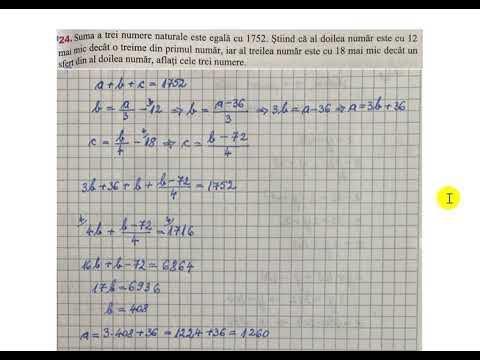 724. Suma a trei numere naturale este egală cu 1752. Știind că al doilea număr este cu 12
mai mic decât o treime din primul număr, iar al treilea număr este cu 18 mai mic decât un
sfert din al doilea număr, aflați cele trei numere.
a + b + c = 1752
b = a/3 - ³⁾12 ⇒ b = (a-36)/3 ⇒ 3b = a-36 ⇒ a = 3b+36
c = b/4 - ⁴⁾18 ⇒ c = (b-72)/4
3b+36 + b + (b-72)/4 = 1752
⁴⁾4b + (b-72)/4 = ⁴⁾1716
16b + b - 72 = 6864
17b = 6936
b = 408
a = 3·408+36 = 1224+36 = 1260